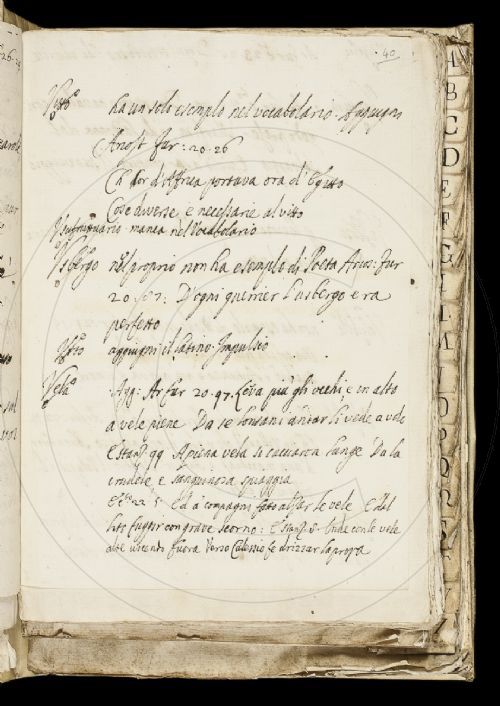 40
Vitto ha un solo esemplo nel vocabolario. Aggiugni
Ariost. fur: 20. 26
Ch' or d'Affrica portava ora d'Egitto
Cose diverse, e necessarie al vitto
Usufruttuario manca nel Vocabolario
Usbergo nel proprio non ha esemplo di Poeta Arios: fur
20. : D'ogni guerrier l'usbergo era
perfetto
Urto aggiugni il latino. Impulsio
Vela Agg: Ar. fur 20. 97. Leva più gli occhi, e in alto
a vele piene Da se lontani andar li vede a volo
E stanz 99 A piena vela si cacciaron lunge Da la
crudele e sanguinosa spiaggia
E C.to 22. 5. Ed a' compagni fatto alzar le vele E dal
lito fuggir con grave scorno: E stanz. 8. Indi con le vele
alte uscendo fuora Verso Calessio fe drizzar la prora
A
B
C
D
E
F
G
I
L
M